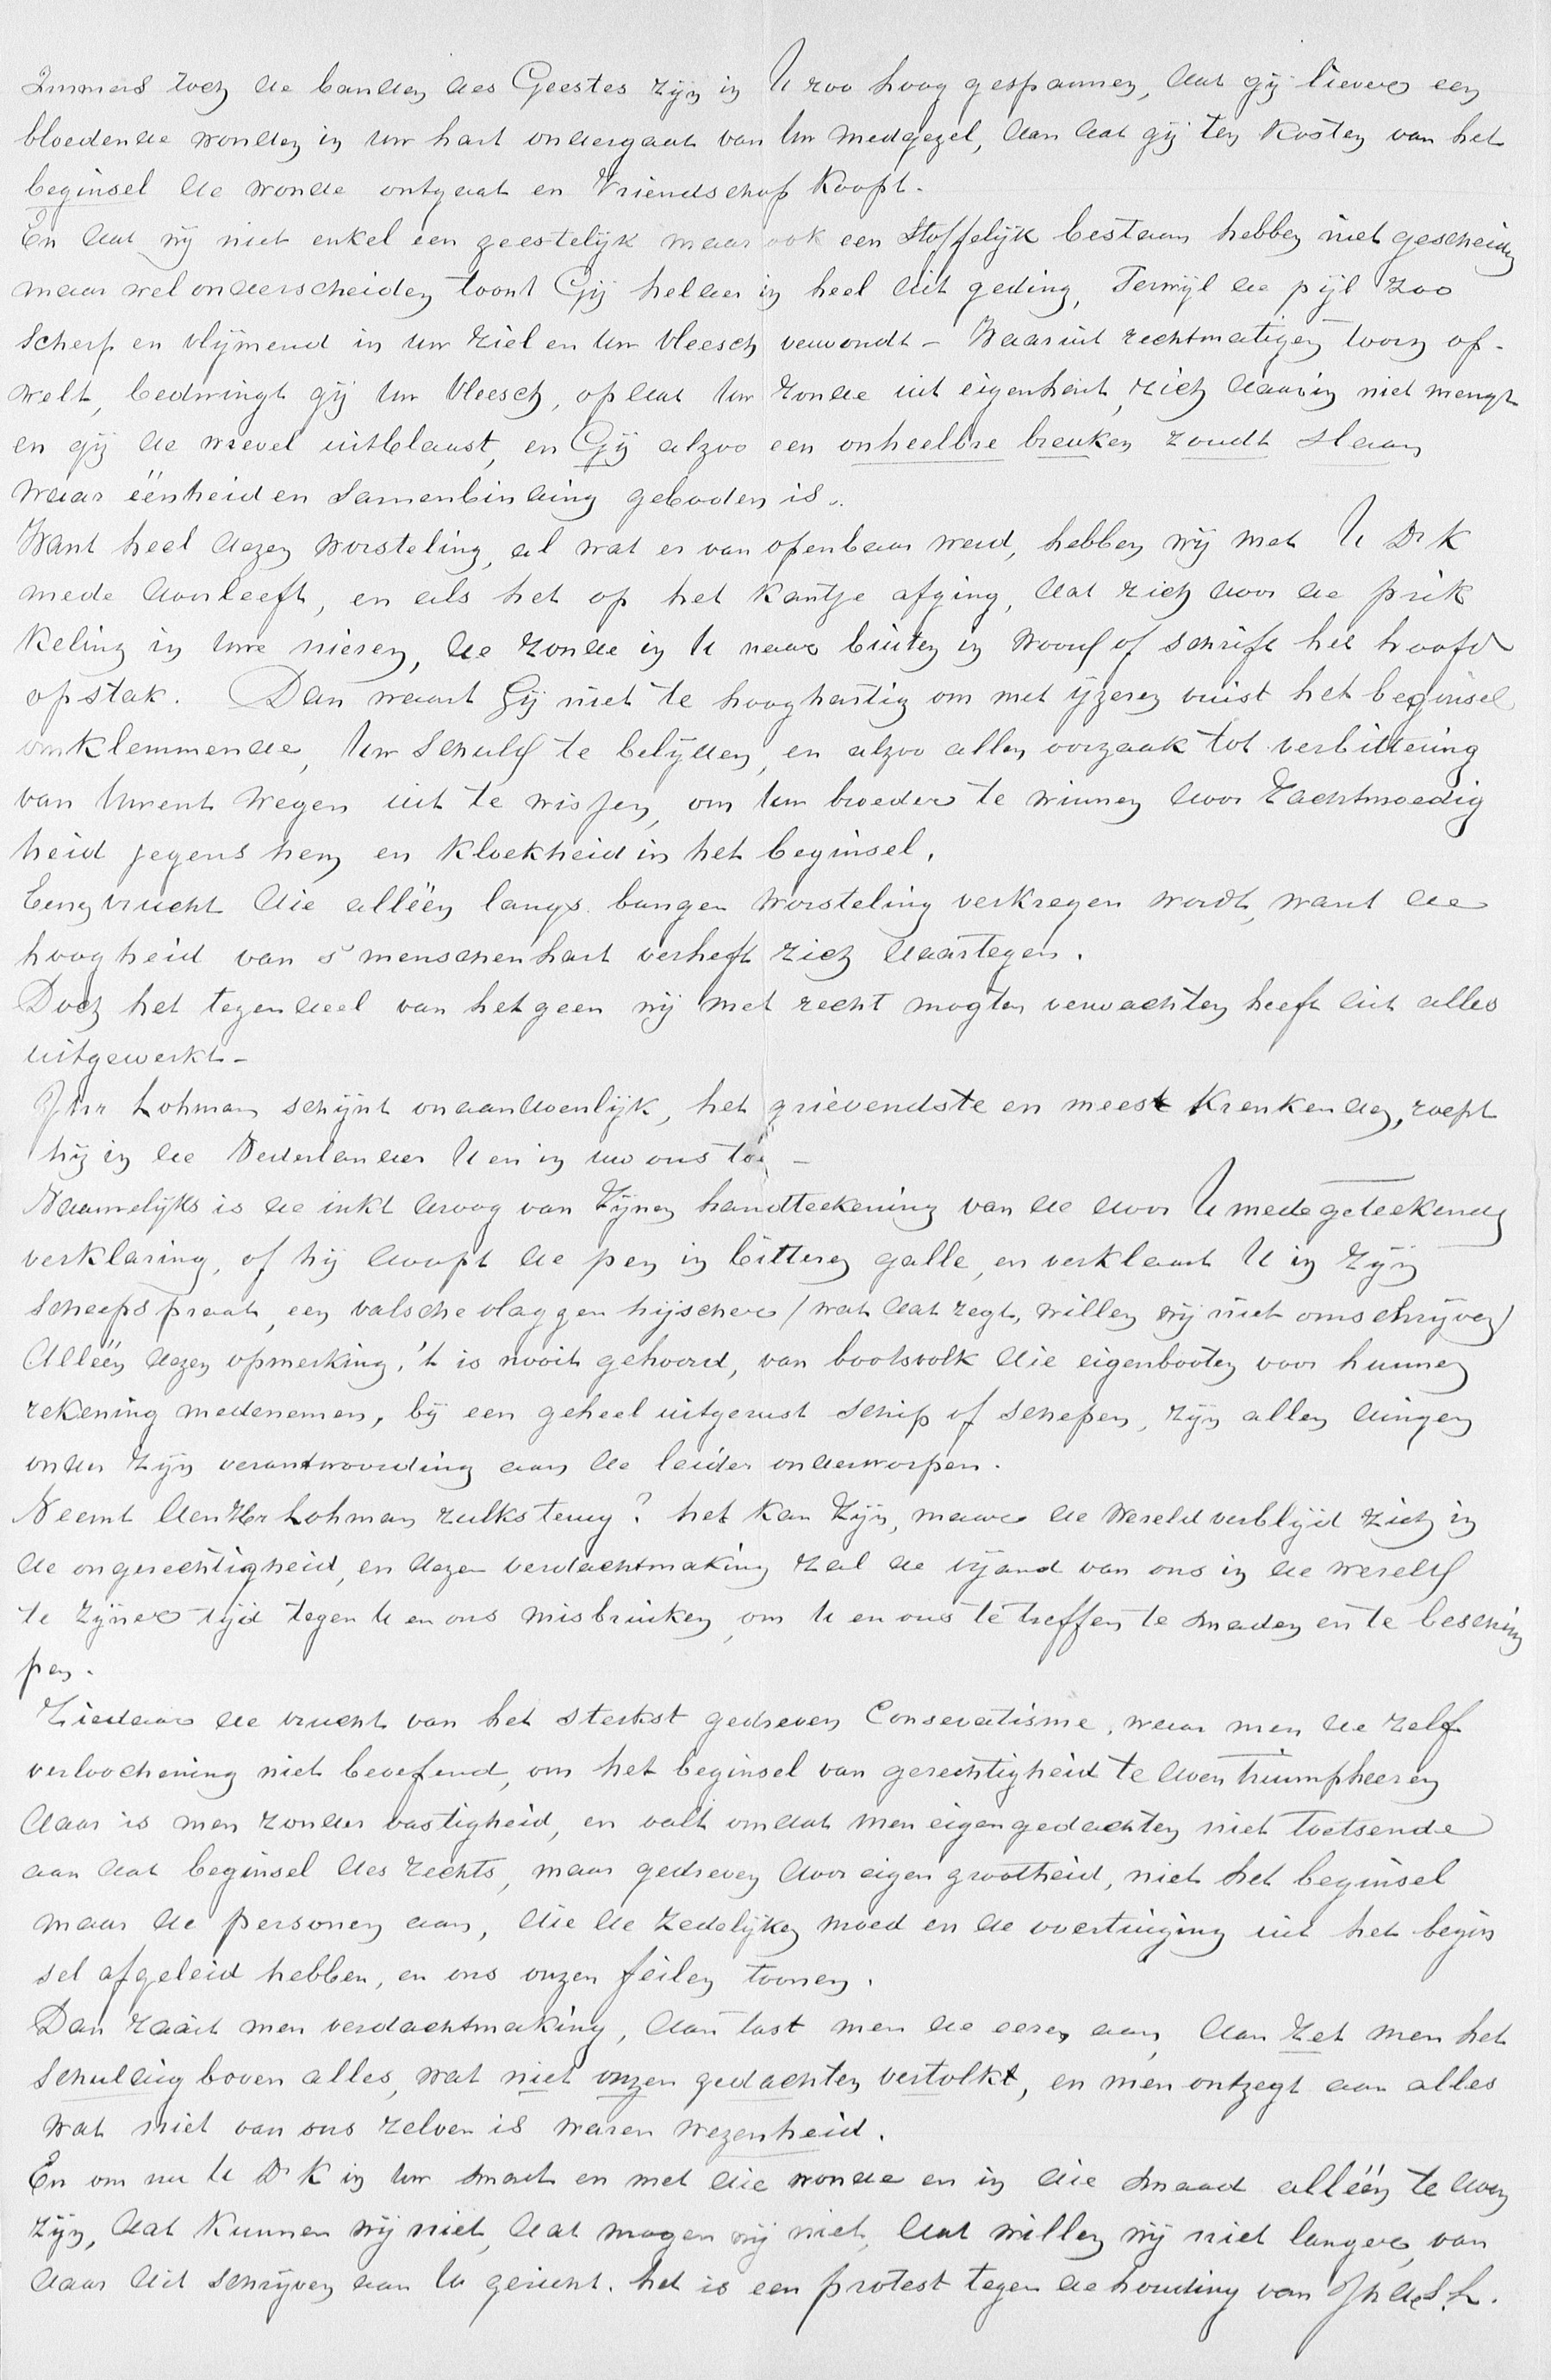 Immers toch de banden des Geestes zijn in U zoo hoog gespannen, dat gij liever een
bloedende wonden in uw hart ondergaat van Uw medgezel, dan dat gij ten kosten van het
beginsel de wonde ontgaat en Vriendschap koopt.
En dat wij niet enkel een geestelijk maar ook een Stoffelijk bestaan hebben niet gescheiden
maar wel onderscheiden toont Gij helder in heel dit geding, Terwijl de pijl zoo
scherp en vlijmend in uw ziel en Uw vleesch verwondt - Waaruit rechtmatigen toorn op-
welt, bedwingt gij Uw Vleesch, opdat Uw zonde uit eigenheid, zich daarin niet mengt
en gij de wrevel uitblaast, en Gij alzoo een onheelbre breuken zoudt slaan
waar ëënheid en Samenbinding geboden is.
Want heel dezen worsteling, al wat er van openbaar werd, hebben wij met U Dr K
mede doorleeft, en als het op het kantje afging, dat zich door de prik
keling in Uwe nieren, de zonde in U naar buiten in Woord of schrift het hoofd
opstak. Dan waart Gij niet te hooghartig om met ijzeren vuist het beginsel
omklemmende, Uw Schuld te belijden, en alzoo allen oorzaak tot verbittering
van Uwent wegen uit te wisschen, om Uw broeder te winnen door Zachtmoedig
heid jegens hem en kloekheid in het beginsel.
Eene vrucht die allëën langs bangen worsteling verkregen wordt, want de
hoogheid van s'menschenhart verheft zich daartegen.
Doch het tegendeel van hetgeen wij met recht mogten verwachten heeft dit alles
uitgewerkt -
Jhr Lohman schijnt onaandoenlijk, het grievendste en meest krenkenden, roept
hij in de Nederlander U en in uw ons toe -
Naauwelijks is de inkt droog van Zijnen handteekening van de door U medegeteekende
verklaring, of hij doopt de pen in bitteren galle, en verklaart U in zijn
Scheepspraat, een valsche vlaggen hijscher / wat dat zegt, willen wij niet omschrijven /
Allëën dezen opmerking, 't is nooit gehoord, van bootsvolk die eigenbooten voor hunnen
rekening medenemen, bij een geheel uitgerust schip of schepen, zijn allen dingen
onder zijn verantwoording aan de leider onderworpen.
Neemt den Hr Lohman zulks terug? het kan zijn, maar de wereld verblijd zich in
de ongerechtigheid, en dezen verdachtmaking zal de vijand van ons in de wereld
te zijner tijd tegen U en ons misbruiken, om U en ons te treffen te smaden en te beschim
pen.
Ziedaar de vrucht van het sterkst gedreven Consevatisme, waar men de zelf
verloochening niet beoefend, om het beginsel van gerechtigheid te doen triumpheeren
daar is men zonder vastigheid, en valt omdat men eigengedachten niet toetsende
aan dat beginsel des rechts, maar gedreven door eigen grootheid, niet het beginsel
maar de personen aan, die de zedelijken moed en de overtuiging uit het begin
sel afgeleid hebben, en ons onzen feilen toonen.
Dan zaait men verdachtmaking, dan tast men de eeren aan, dan zet men het
schuldig boven alles, wat niet onzen gedachten vertolkt, en men ontzegt aan alles
wat niet van ons zelven is waren wezenheid.
En om nu U Dr K in Uw smart en met die wonde en in die smaad allëën te doen
zijn, dat kunnen wij niet, dat mogen wij niet, dat willen wij niet langer, van
daar dit schrijven aan U gericht. het is een protest tegen de houding van Jh de S. L.